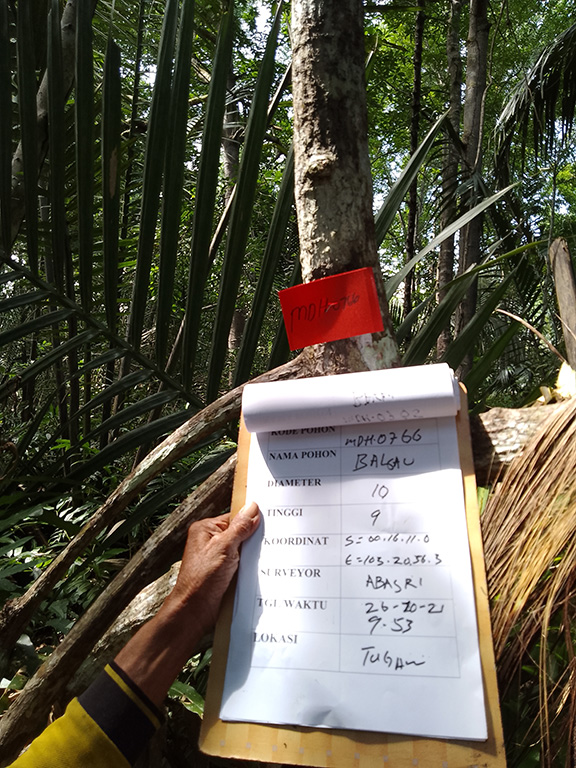 MDH-0766
KODE POHON MDH.0766
NAMA POHON BALGAU
DIAMETER 10
TINGGI 9
KOORDINAT S=00.16.11.0
E=103.20.56.3
SURVEYOR ABASRI
TGL WAKTU 26-10-21
9.53
LOKASI